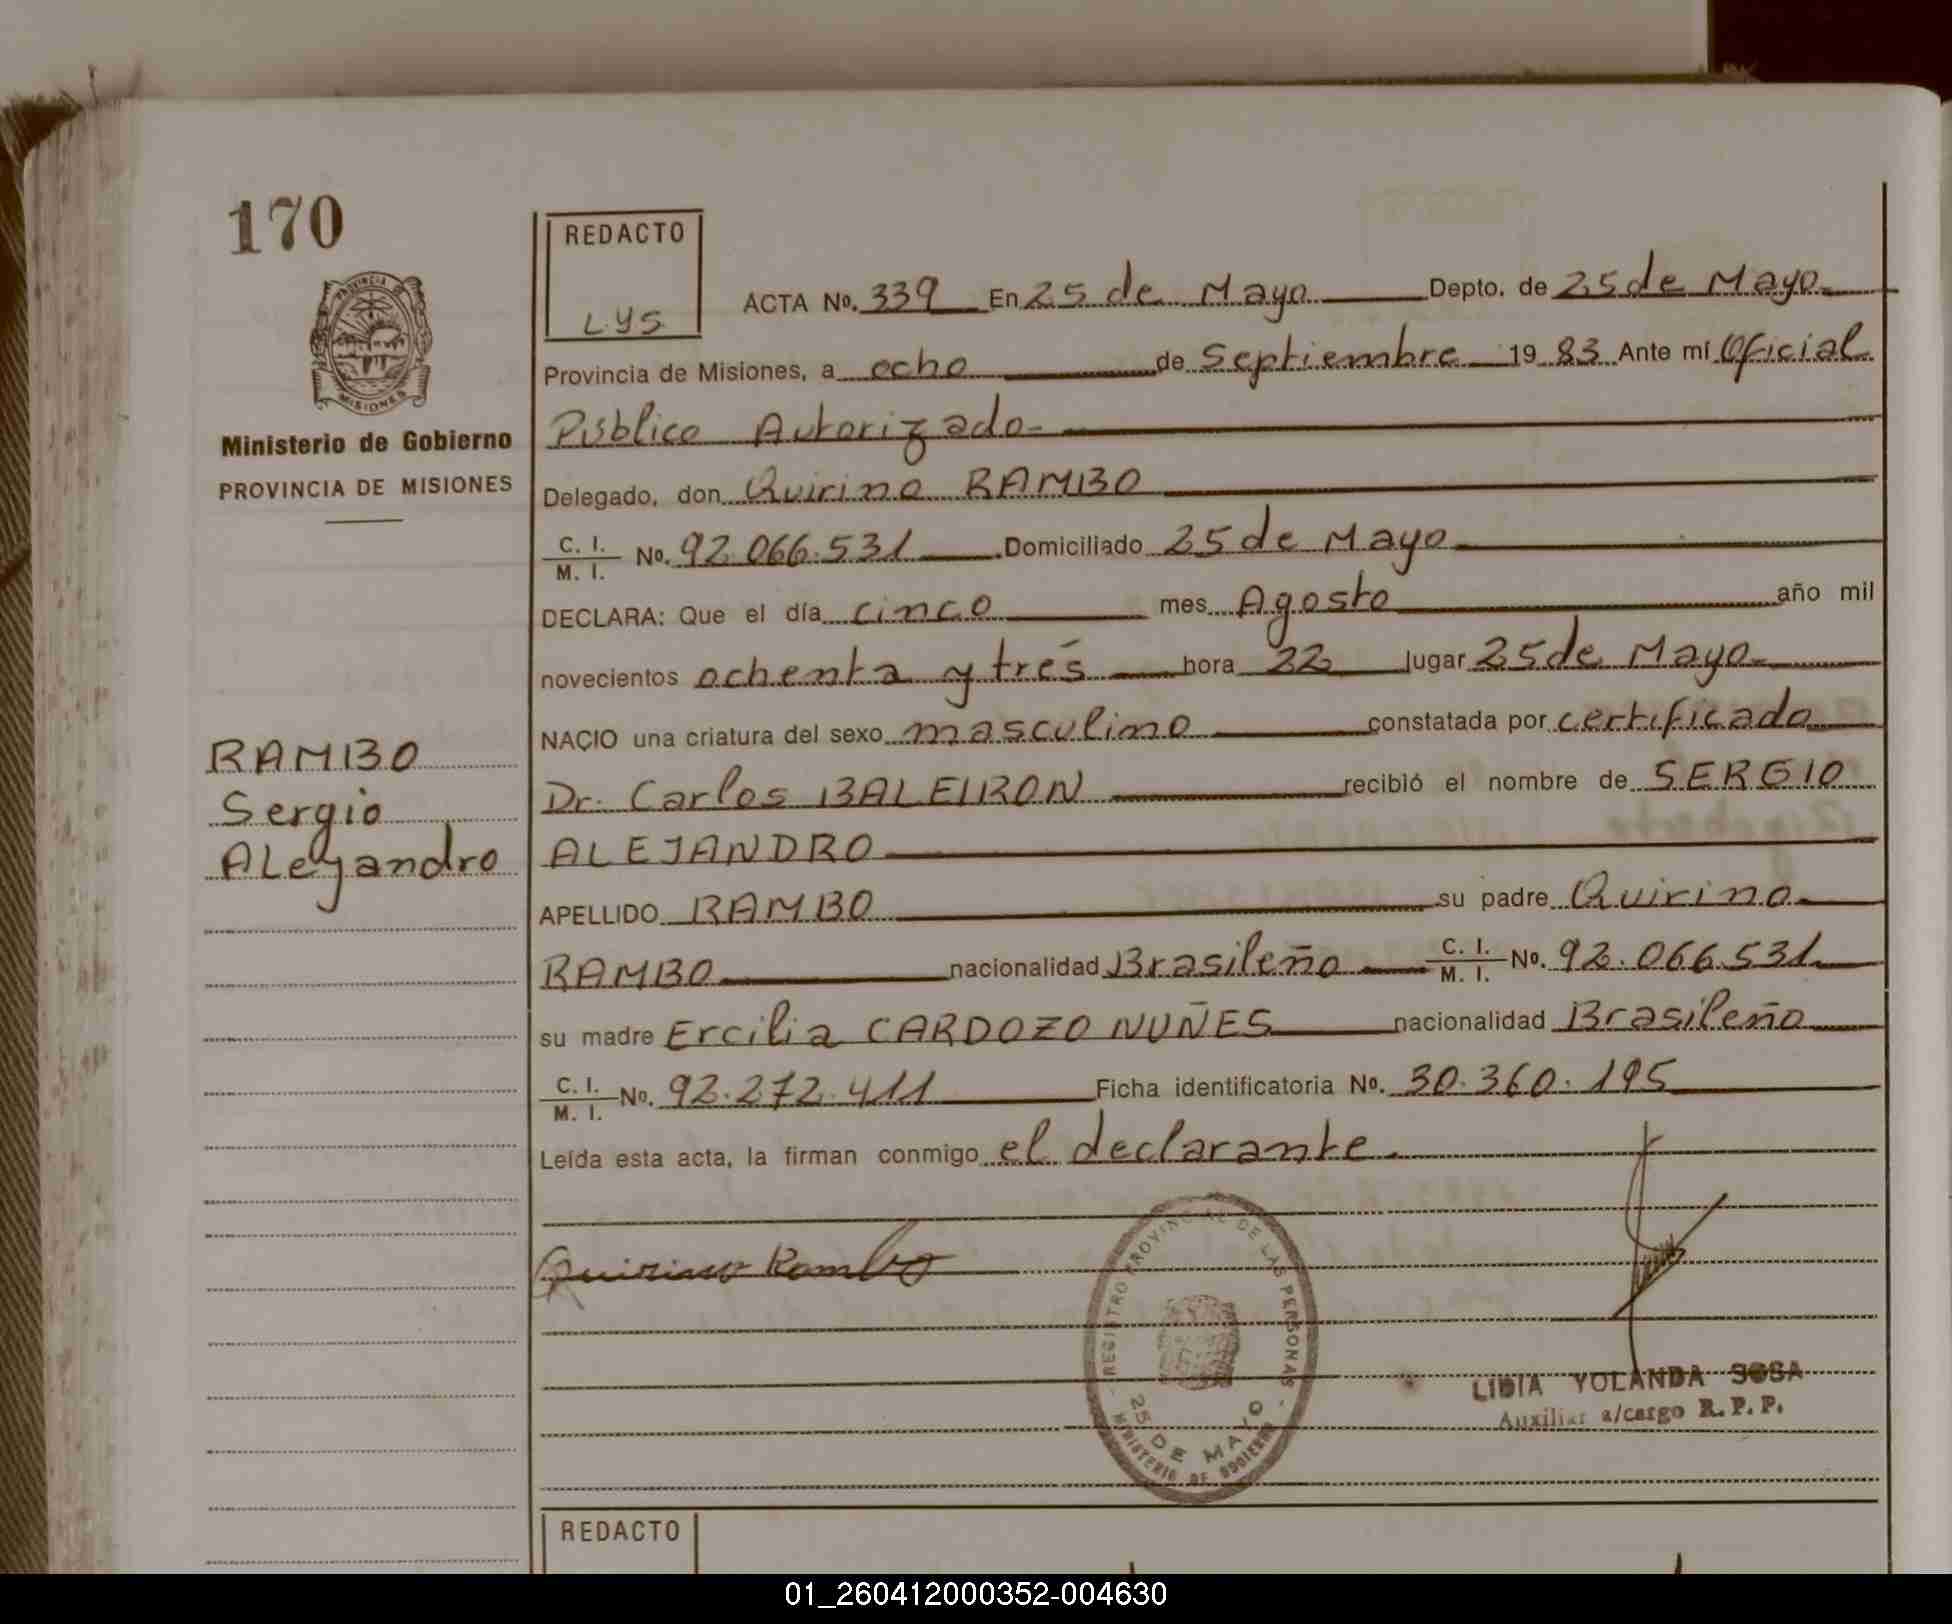 170
REDACTO
L.Y.S
PROVINCIA DE
MISIONES
Ministerio de Gobierno
PROVINCIA DE MISIONES
ACTA No. 339 En 25 de Mayo Depto. de 25 de Mayo
Provincia de Misiones, a ocho de Septiembre 19 83 Ante mí Oficial
Público Autorizado
Delegado, don Quirino RAMBO
C. I. / M. I. No. 92.066.531 Domiciliado 25 de Mayo
DECLARA: Que el día cinco mes Agosto año mil
novecientos ochenta y trés hora 22 lugar 25 de Mayo
NACIO una criatura del sexo masculino constatada por certificado
Dr. Carlos BALEIRON recibió el nombre de SERGIO
ALEJANDRO
APELLIDO RAMBO su padre Quirino
RAMBO nacionalidad Brasileño C. I. / M. I. No. 92.066.531
su madre Ercilia CARDOZO NUÑES nacionalidad Brasileño
C. I. / M. I. No. 92.272.411 Ficha identificatoria No. 30.360.195
Leída esta acta, la firman conmigo el declarante.
RAMBO
Sergio
Alejandro
Quirino Rambo
REGISTRO PROVINCIAL DE LAS PERSONAS
25 DE MAYO
MINISTERIO DE GOBIERNO
LIDIA YOLANDA SOSA
Auxiliar a/cargo R. P. P.
REDACTO
01_260412000352-004630